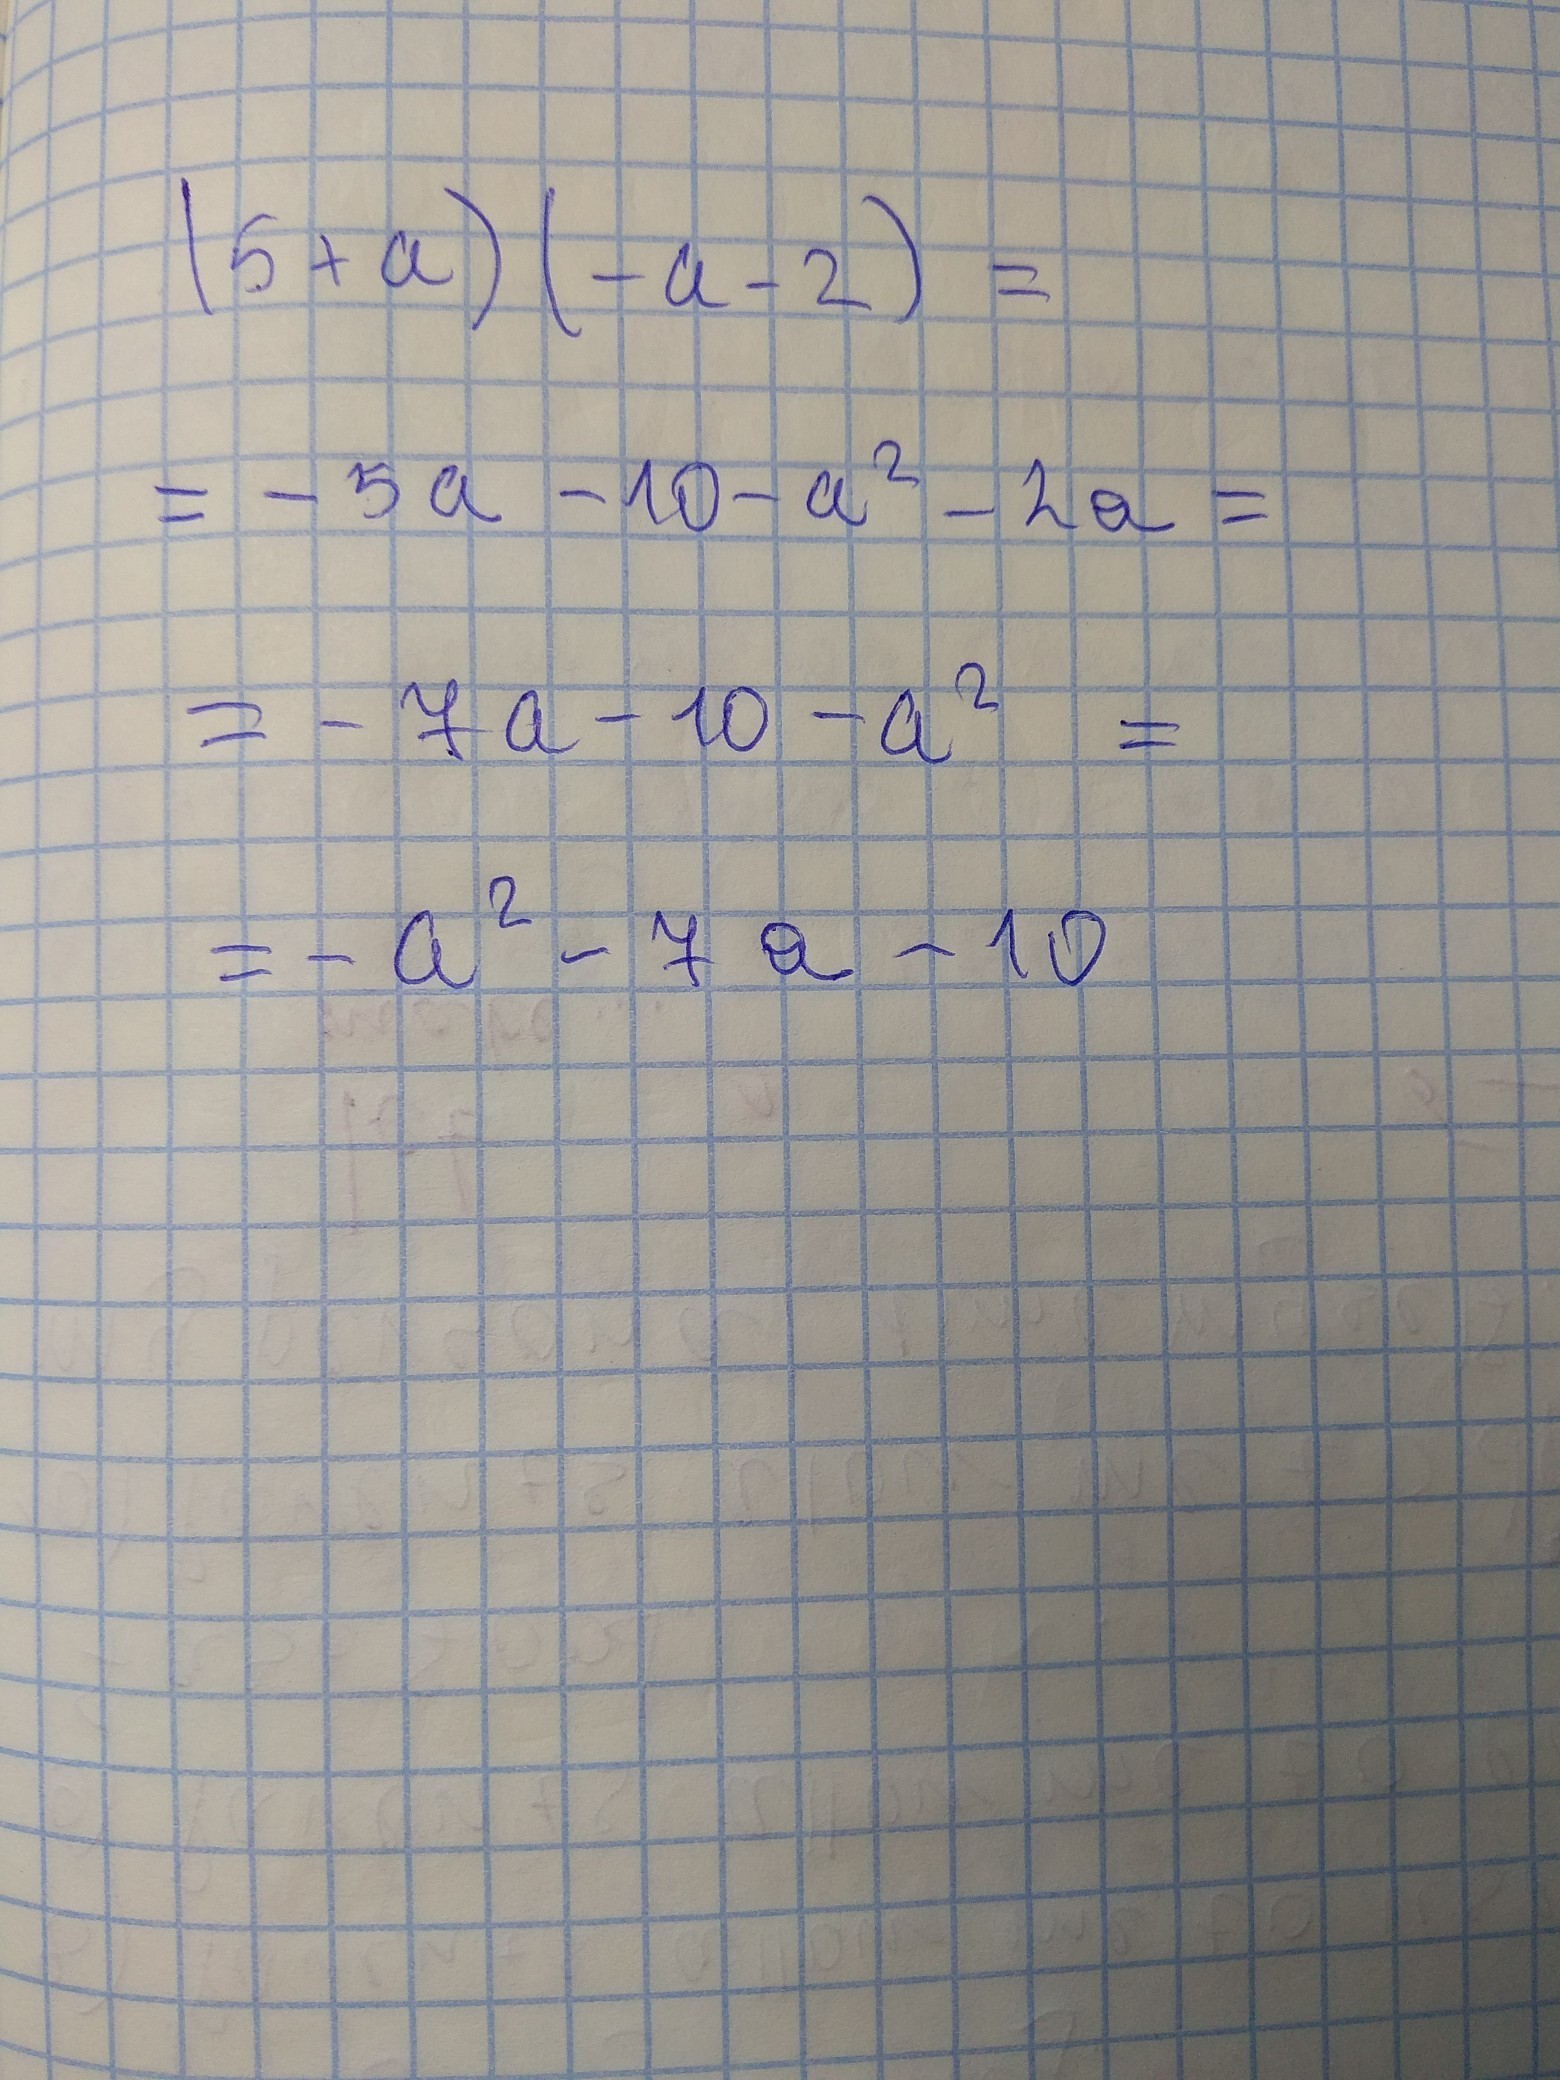 (5+a)(-a-2) =
= -5a -10 - a² - 2a =
= -7a - 10 - a² =
= - a² - 7a - 10